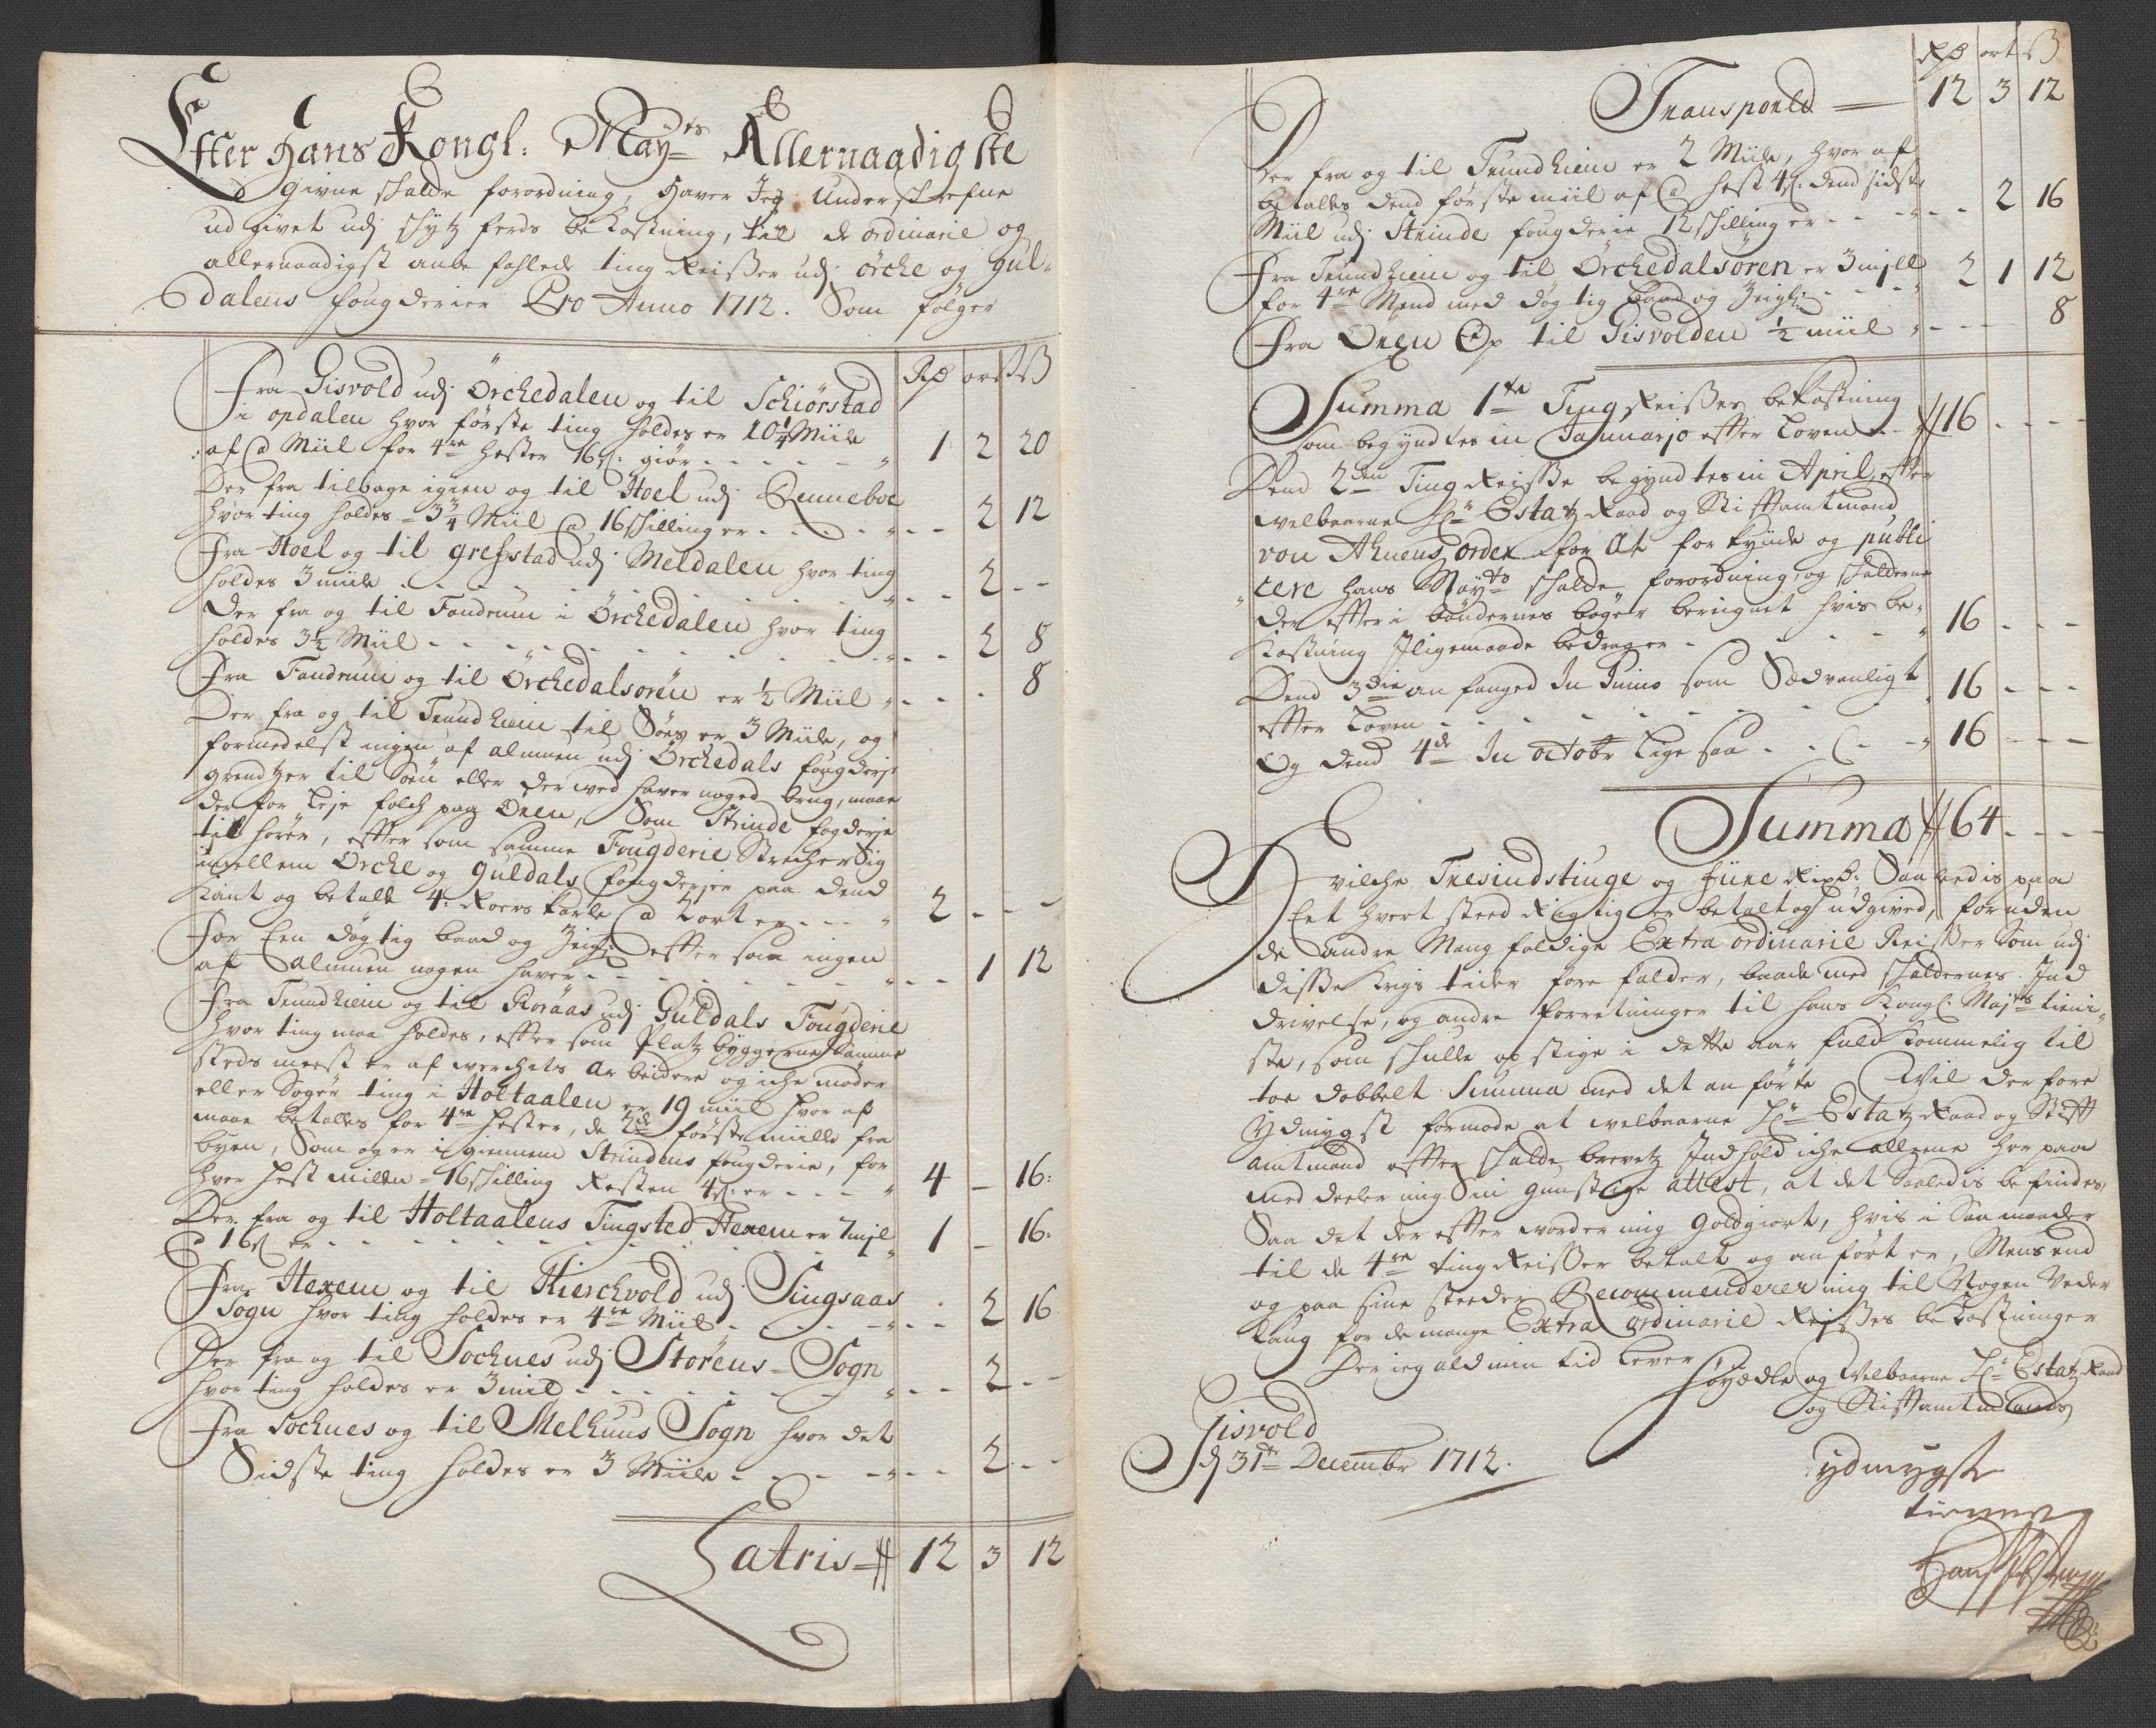 Efter Hans Kongl: Mayts Allernaadigste
givne schalde forordning, haver Jeg Underschrefne
udgivet udj schytz ferds bekostning, til de ordinarie og
allernaadigst anbefahlede ting Reisser udj örche og gul-
dalens fougderier Pro Anno 1712. Som følger
Rd ort ß
Fra Gisvold udj Örchedalen og til Schiörstad
i opdalen hvor første ting holdes er 10¼ Miile
af @ Miil for 4re hester 16 s: giör - - - 1 2 20
Der fra tilbage igien og til Hoel udj Renneboe
hvor ting holdes = 3¾ Miil @ 16 schilling er - - - 2 12
Fra Hoel og til grefstad udj Meldalen hvor ting
holdes 3 miile - - - 2 -
Der fra og til Fandrum i Örchedalen hvor ting
holdes 3½ Miil - - - 2 8
Fra Fandrum og til Örchedalsoren er ½ Miil - - - 8
Der fra og til Trundhiem til Söes er 3 Miile, og
formedelst ingen af almuen udj Örchedals fougderje
grendtzer til Söen eller derved haver noged brug, maae
der for leje folch paa Ören, Som Strinde fogderje
til hører, efftersom samme Fougderie Strecher Sig
imellem Orche og Guldals fougderjer paa dend
Kant og betalt 4: Roers Karle @ 2 ort er - - 2 - -
For Een døgtig baad og Zeigl: effter som ingen
af Almuen nogen haver - - - 1 12
Fra Trundhiem og til Roraas udj Guldals Fougderie
hvor ting maa holdes, effter som Platz byggerne samme
steds meest er af werchets arbeidere og iche møder
eller Søger ting i Holtaalen er 19 miil hvor af
maae betalles for 4re hester, de 2de første miille fra
byen, Som og er igiennem Strindens fougderie, for
hver hest milen = 16 schilling Resten 4 s: er - - - 4 - 16:
Der fra og til Holtaalens Tingsted Hexem er 7 mjl
@ 16 s er - - - 1 - 16:
Fra Hexem og til Kirchvold udj Singsaas
Sogn hvor ting holdes er 4re Miil - - - 2 16
Der fra og til Sochnes udj Störens Sogn
hvor ting holdes er 3 miil - - - 2 - -
Fra Sochnes og til Melhuus Sogn hvor det
Sidste ting holdes er 3 Miile - - - 2 - -
Latris 12 3 12
Rd ort ß
Transporld 12 3 12
Der fra og til Trundhiem er 2 Miile, hvor af
betalles dend første miil af @ hest 4 s: dend sidste
Miil udj Strinde fougderie 12 schilling er - - - 2 16
Fra Trundhiem og til Örchedalsören er 3 mjll
for 4re Mend med døgtig baad og Zeigl: - - - 2 1 12
Fra Ören Op til Gisvolden ½ miil - - - 8
Summa 1te Ting Reisses bekostning
som begyndtes in Januarjo effter Loven - - 16 - - -
Dend 2den Ting Reisse begyndtes in April effter
welbaarne Hr Estatz Raad og Stifftamtmand
von Ahnens order for At forkynde og publi
cere Hans Mayts schalde forordning, og schalderne
der effter i bøndernes bøger berignet hvis be-
kostning Jligemaade bedrager - - - 16 - - -
Dend 3die anfanged In Junio som Sædvanligt
effter Loven - - - 16 - - -
Og dend 4de In octobr lige saa - - - 16 - - -
Summa 64 - - -
Hvilche Tresindstiuge og fiire Rixd: Saaledis paa
Eet hvert steed Rigtig er betalt og udgived, foruden
de andre Mangfoldige Extra ordinarie Reisser Som udj
disse Krigs tider forefalder, baade med schaldernes Ind
drivelse, og andre forretninger til hans Kongl: Mayts tieni-
ste, som schulle opstige i dette aar fuldkommelig til
toe dobbelt Summa med det anførte Vil derfore
Ydmygst formode at welbaarne Hr Estatz Raad og Stifft
amtmand effter schalde brevetz Indhold iche alleene her paa
meddeeler mig Sin gunstige attest, at det Saaledis befindes
Saa det dereffter worder mig Godgiort, hvis i Saa maader
til de 4re ting Reisser betalt og anført er, Mens end
og paa sine steeder Recommenderer mig til Nogen Veder
lang for de mange Extra ordinarie Reisses bekostninger
Der ieg ald min tid lever
Höyædle og Velbaarne Hr Estatz Raad
og Stifftamtmands
Gisvold
d 31te Decembr 1712.
ydmygste
tienner